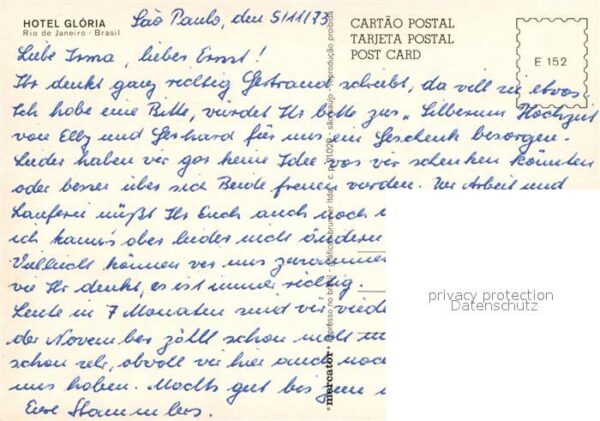 HOTEL GLÓRIA
Rio de Janeiro - Brasil
São Paulo, den 5/11/73
CARTÃO POSTAL
TARJETA POSTAL
POST CARD
E 152
Liebe Irma, lieber Ernst!
Ihr denkt ganz richtig Gertraud schreibt, da will sie etwas.
Ich habe eine Bitte, würdet Ihr bitte zur "Silbernen Hochzeit
von Elly und Gerhard für uns ein Geschenk besorgen.
Leider haben wir gar keine Idee was wir schenken könnten
oder besser über sich Beide freuen würden. Die Arbeit und
Lauferei müßt Ihr Euch auch noch
ich kann's aber leider nicht ändern
Vielleicht können wir uns zusammen
wie Ihr denkt, es ist immer richtig.
Heute in 7 Monaten sind wir wieder
der November zählt schon nicht m
schon sehr, obwohl wir hier auch noch
uns haben. Machts gut bis zum
Eure Stammlers.
mercator
impresso no brasil - gráficos brunner ltda - c. p. 31.029 - são paulo - reprodução proibida
privacy protection
Datenschutz